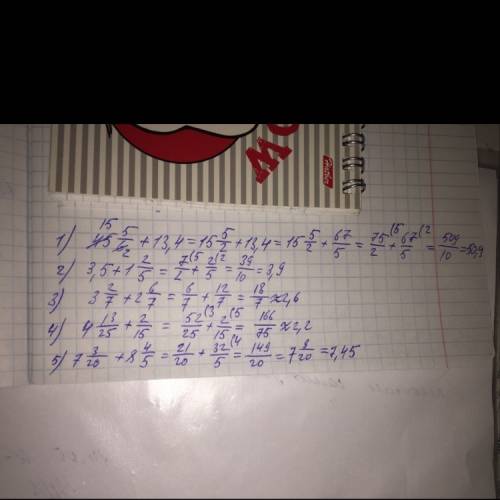 OW
15
1) 45 5/6 2 + 13,4 = 15 5/2 + 13,4 = 15 5/2 + 67/5 = 75/2 (5 + 67/5 (2 = 509/10 = 50,9
2) 3,5 + 1 2/5 = 7/2 (5 + 2/5 (2 = 39/10 = 3,9
3) 3 2/7 + 2 6/7 = 6/7 + 12/7 = 18/7 ≈ 2,6
4) 4 13/25 + 2/15 = 52/25 (3 + 2/15 (5 = 166/75 ≈ 2,2
5) 7 3/20 + 8 4/5 = 21/20 + 32/5 (4 = 149/20 = 7 9/20 = 7,45